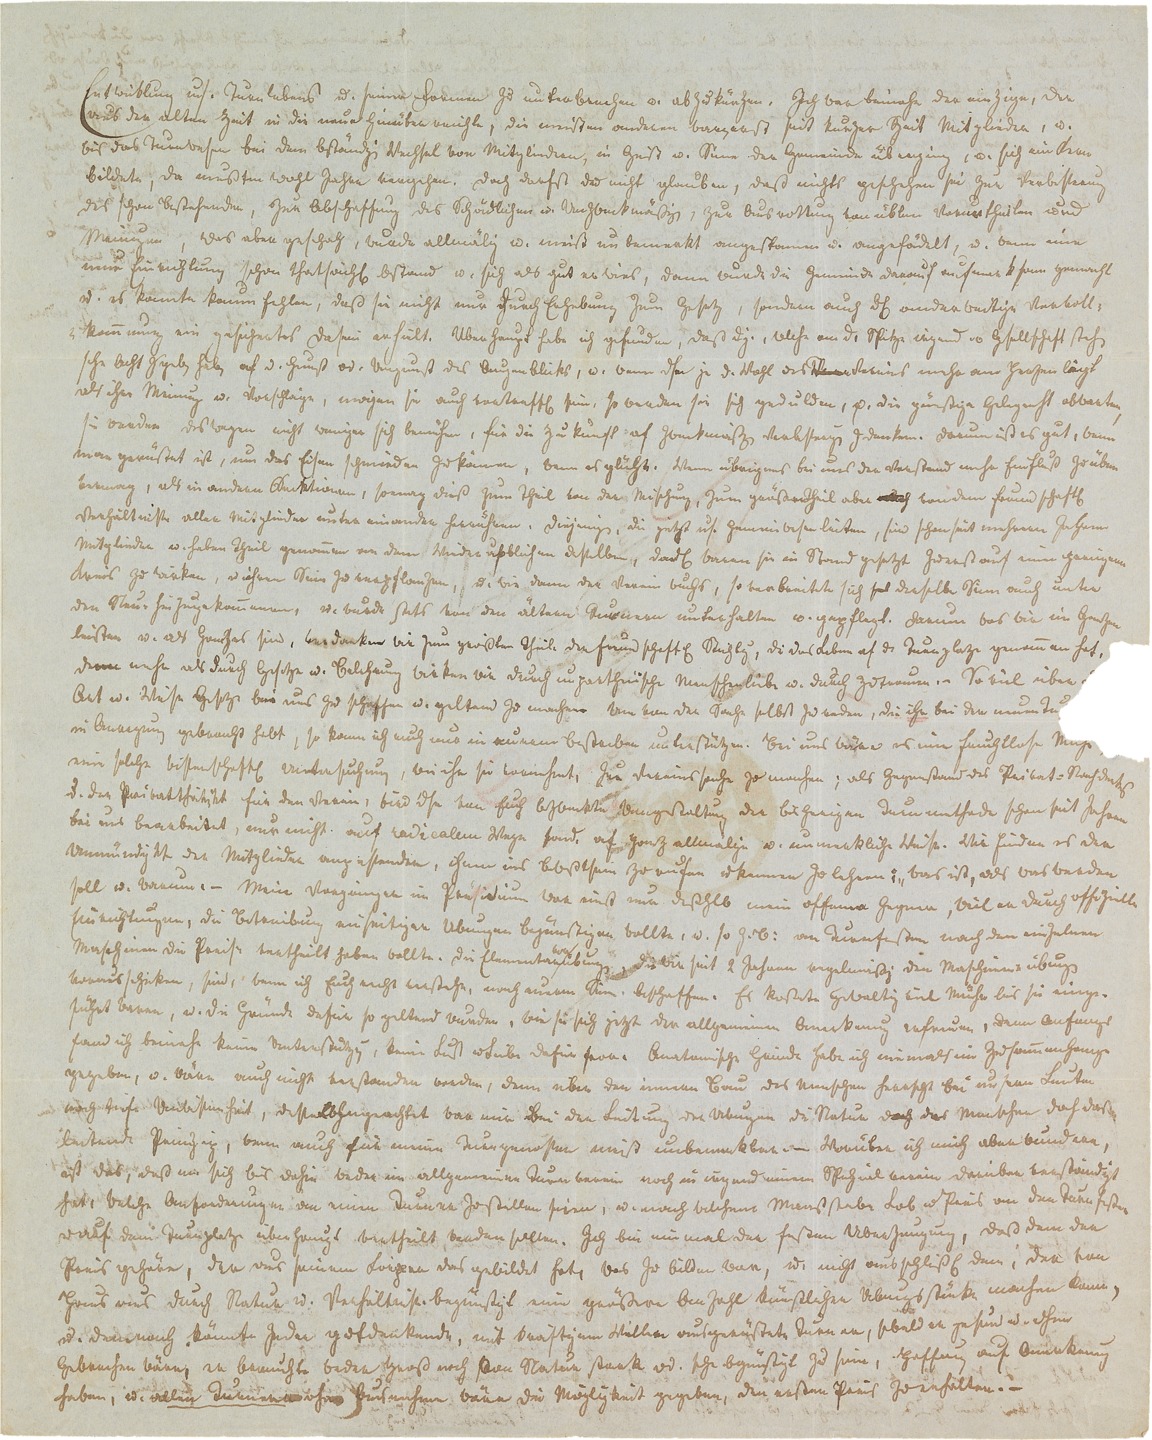 Entwicklung uns. Turnlebens u. seiner Formen zu unterbrechen u. abzukürzen. Ich war beinahe der einzige, der
aus der alten Zeit in die neue hinüberreichte, die meisten anderen waren erst seit kurzer Zeit Mitglieder, u.
bis das Turnwesen bei dem beständig Wechsel von Mitgliedern, in Geist u. Sinn der Gemeinde überging, u. sich ein Kern
bildete, da mußten wohl Jahre vergehen. Doch darfst du nicht glauben, daß nichts geschehen sei zur Verbesserung
des schon bestehenden, zur Abschaffung des Schädlichen u. Unzweckmäßig, zur Ausrottung von üblen Vorurtheilen und
Meinungen, was aber geschah, wurde allmälig u. meist unbemerkt angesponnen u. angefädelt, u. wenn eine
neue Einrichtung schon thatsächl bestand u. sich als gut erwies, dann wurde die Gemeinde darauf aufmerksam gemacht
u. es konnte kaum fehlen, daß sie nicht nur durch Erhebung zum Gesetz, sondern auch anderweitige Vervoll-
kommnung ein gesichertes Dasein erhielt. Überhaupt habe ich gefunden, daß welche an d. Spitze irgend Gesellschaft steh
sehr Acht haben auf d. Gunst od. Ungunst des Augenblicks, u. wenn d. Wohl des Vereins mehr am Herzen liegt
als ihre Meinung u. Vorschläge, mögen sie auch vortreffl sein, so werden sie sich gedulden, die günstige Gelegenht abwarten,
sie werden deswegen nicht weniger sich bemühen, für die Zukunft auf zweckmäß Verbesserg z denken. Darum ist es gut, wenn
man gerüstet ist, um das Eisen schmieden zu können, wenn es glüht. Wenn übrigens bei uns der Vorstand mehr Einfluß zu üben
vermag, als in andern Sectionen, so mag dieß zum Theil von der Mischung, zum größern Theil aber von dem freundschaftl
Verhältniße aller Mitglieder unter einander herrühren. Diejenig, die jetzt uns. Gemeinwesen leiten, sind schon seit mehrern Jahren
Mitglieder u. haben Theil genommen an dem Wiederaufblühen desselben, dadch waren sie in Stand gesetzt zuerst auf einen geringern
Kreis zu wirken, u. ihren Sinn zu verpflanzen, u. wie dann der Verein wuchs, so verbreitete sich derselbe Sinn auch unter
den Neu-hinzugekommenen, u. wurde stets von den ältern Turnern unterhalten u. gepflegt. Darum was wir im Ganzen
leisten u. als Ganzes sind, verdanken wir zum größten Theile der freundschaftl die das Leben auf d. Turnplatze genommen hat,
denn mehr als durch Gesetze u. Belehrung wirken wir durch unpartheiische Menschenliebe u. durch Zutrauen. – So viel über
Art u. Weise Gesetze bei uns zu schaffen u. geltend zu machen. Um von der Sache selbst zu reden, die ihr bei der neuen
in Anregung gebracht habt, so kann ich euch nur in eurem Bestreben unterstützen. Bei uns wäre es eine fruchtlose
eine solche wissenschaftl Untersuchung, wie ihr sie vornehmt, zur Vereinssache zu machen; als Gegenstand des Privat-Nachdenk
u. der Privatthätigkt für den Verein, wird von Euch bezweckte Umgestaltung der bisherigen Turnmethode schon seit Jahren
bei uns bearbeitet, nur nicht auf radicalem Wege sond. auf ganz allmälige u. unmerkliche Weise. Wir finden es der
Unmündigkt der Mitglieder angestanden, ihnen ins Bewßtsein zu rufen zu lehren: was ist, als was werden
soll u. warum. – Mein Vorgänger im Präsidium war einst nur deßhlb mein offener Gegner, weil er durch offizielle
Einrichtungen, die Betreibung einseitiger Übungen begünstigen wollte, u. so z.B: an Turnfesten nach den einzelnen
Maschinen die Preise vertheilt haben wollte. Die Elementarübung, die wir seit 2 Jahren regelmäßig den Maschinenübung
vorausschicken, sind, wenn ich Euch recht verstehe, nach eurem Sinn beschaffen. Es kostete gewaltig viel Mühe bis sie einge-
führt waren, u. die Gründe dafür so geltend wurden, wie sie sich jetzt der allgemeinen Anerkennung erfreuen, denn Anfangs
fand ich beinahe keine Unterstützg, keine Lust u Liebe dafür. Anatomische Gründe habe ich niemals im Zusammenhange
gegeben, u. wären auch nicht verstanden worden, denn über den innern Bau des Menschen herrscht bei unsern Leuten
noch tiefe Unwissenheit, desselbungeachtet war mir bei der Leitung der Übungen die Natur des Menschen doch das
leitende Prinzip, wenn auch für meine Turngenossen meist unbemerkbar. – Worüber ich mich aber wundere,
ist das, daß man sich bis dahin weder im allgemeinen Turnverein noch in irgend einem Spezialverein darüber verständigt
hat, welche Anforderungen an einen Turner zu stellen seien, u. nach welchem Maasstabe Lob u Preis an den Turnfesten
u auf dem Turnplatze überhaupt vertheilt werden sollten. Ich bin einmal der festen Überzeugung, daß dem der
Preis gehöre, der aus seinem Körper das gebildet hat, was zu bilden war, u. nicht ausschließl dem, der von
Haus aus durch Natur u. Verhältnisse begünstigt eine größere Anzahl künstlicher Übungsstücke machen kann,
u. demnach könnte jeder gutdenkende, mit kräftigem Willen ausgerüstete Turner, sobald er gesund u. ohne
Gebrechen wäre, er brauchte weder groß noch von Natur stark od. sehr begünstigt zu sein, Hoffnung auf Anerkennung
haben, u. allen Turnern ohne Ausnahme wäre die Möglichkeit gegeben, den ersten Preis zu erhalten. –